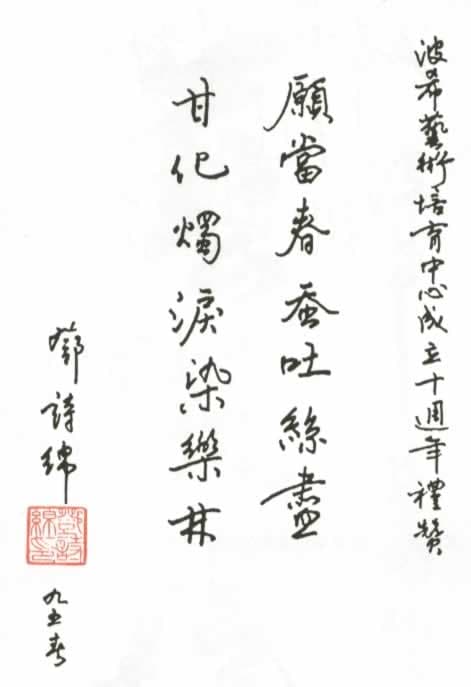 波希藝術培育中心成立十週年禮贊
願當春蚕吐絲盡
甘化燭淚染樂林
鄧詩綿
鄧詩綿印
九五春